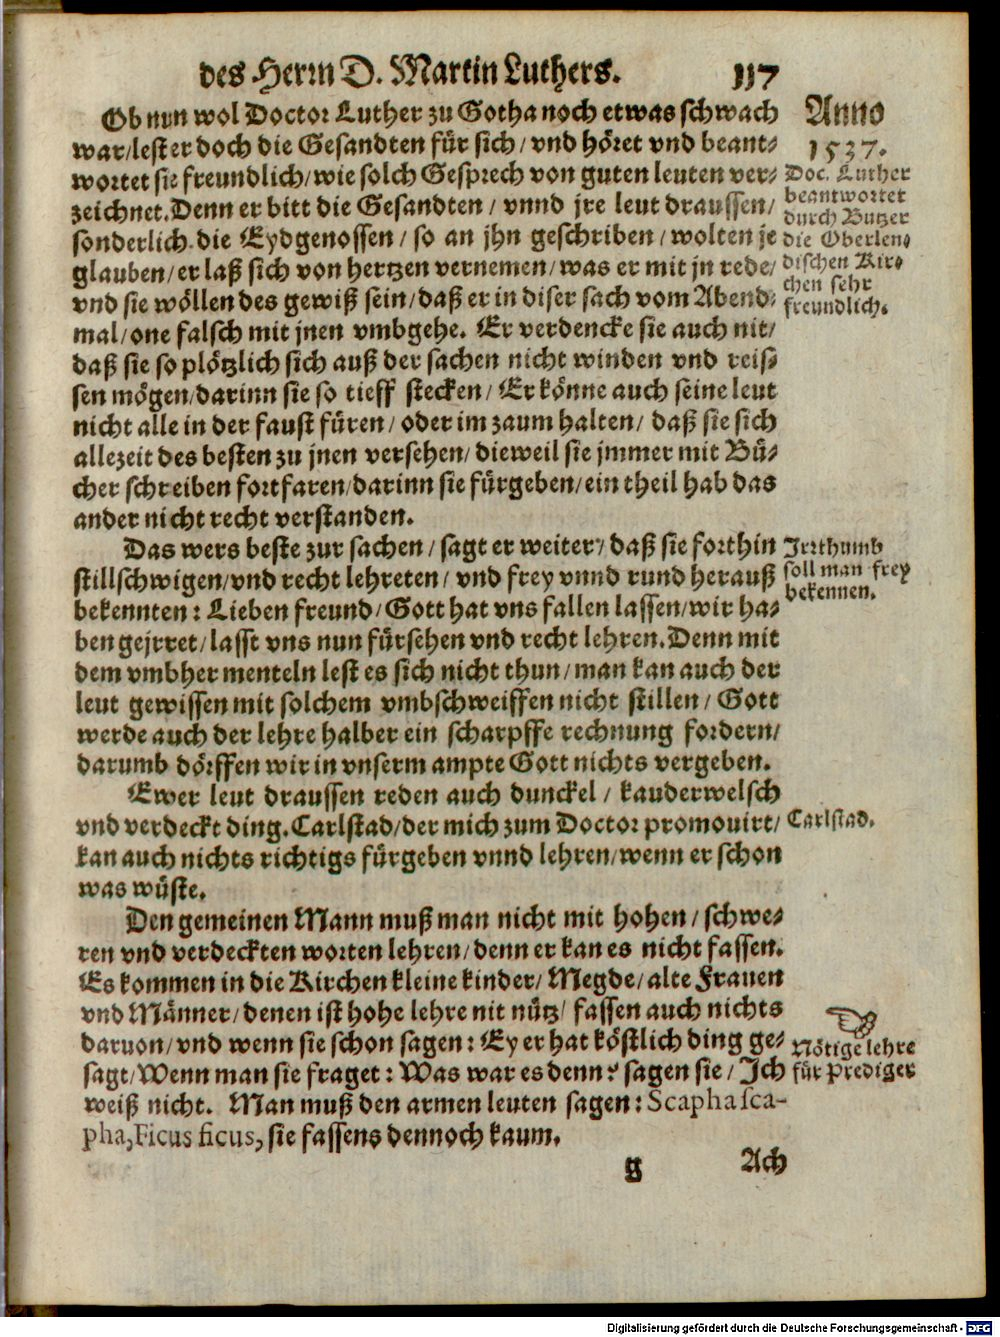 des Herrn D. Martin Luthers. 117
Ob nun wol Doctor Luther zu Gotha noch etwas schwach
war/lest er doch die Gesandten für sich/ vnd höret vnd beant-
wortet sie freundlich/wie solch Gesprech von guten leuten ver-
zeichnet. Denn er bitt die Gesandten/ vnnd jre leut draussen/
sonderlich die Eydgenossen/ so an jhn geschriben/ wolten je
glauben/er laß sich von hertzen vernemen/was er mit jn rede/
vnd sie wöllen des gewiß sein/daß er in diser sach vom Abend-
mal/one falsch mit jnen vmbgehe. Er verdencke sie auch nit/
daß sie so plötzlich sich auß der sachen nicht winden vnd reis-
sen mögen/darinn sie so tieff stecken/ Er könne auch seine leut
nicht alle in der faust füren/ oder im zaum halten/ daß sie sich
allezeit des besten zu jnen versehen/ dieweil sie jmmer mit Bü-
cher schreiben fortfaren/darinn sie fürgeben/ein theil hab das
ander nicht recht verstanden.
Das wers beste zur sachen/ sagt er weiter/ daß sie forthin
stillschwigen/vnd recht lehreten/ vnd frey vnnd rund herauß
bekennten: Lieben freund/ Gott hat vns fallen lassen/wir ha-
ben gejrret/lasst vns nun fürsehen vnd recht lehren. Denn mit
dem vmbher menteln lest es sich nicht thun/ man kan auch der
leut gewissen mit solchem vmbschweiffen nicht stillen/ Gott
werde auch der lehre halber ein scharpffe rechnung fordern/
darumb dörffen wir in vnserm ampte Gott nichts vergeben.
Ewer leut draussen reden auch dunckel/ kauderwelsch
vnd verdeckt ding. Carlstad/der mich zum Doctor promouirt/
kan auch nichts richtigs fürgeben vnnd lehren/wenn er schon
was wüste.
Den gemeinen Mann muß man nicht mit hohen/ schwe-
ren vnd verdeckten worten lehren/ denn er kan es nicht fassen.
Es kommen in die Kirchen kleine kinder/ Megde/alte Frauen
vnd Männer/ denen ist hohe lehre nit nütz/ fassen auch nichts
daruon/ vnd wenn sie schon sagen: Ey er hat köstlich ding ge-
sagt/ Wenn man sie fraget: Was war es denn? sagen sie/ Ich
weiß nicht. Man muß den armen leuten sagen: Scapha sca-
pha, Ficus ficus, sie fassens dennoch kaum.
g Ach
Anno
1537.
Doc. Luther
beantwortet
durch Butzer
die Oberlen-
dischen Kir-
chen sehr
freundlich.
Jrrthumb
soll man frey
bekennen.
Carlstad.
Nötige lehre
für Prediger
Digitalisierung gefördert durch die Deutsche Forschungsgemeinschaft - DFG